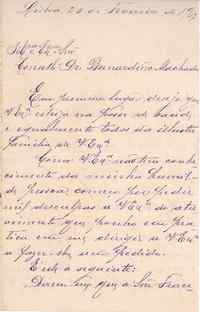 Lisboa 20 de Fevereiro de 19
Senr
Consel.º Dr. Bernardino Machado
Em primeiro lugar desejo que
V Exª esteja na posse de saude,
e egualmente todos da illustre
familia de V Exª.
Como V Exª não tem conhe-
cimento da minha humil-
de pessoa começo por pedir
mil desculpas a V Exª do atre
vimento que ponho em pra
tica em me dirigir a V Exª
a fazer-lhe um pedido.
E é o seguinte:
Dizem-me que a Snr